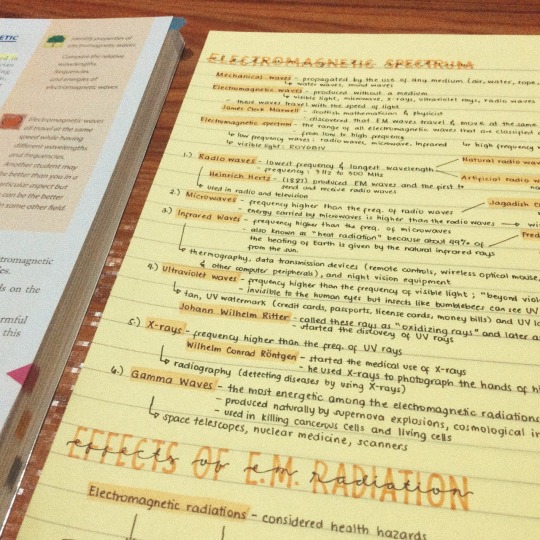 ETIC
Identify properties of
electromagnetic waves
Compare the relative
wavelengths,
frequencies,
and energies of
electromagnetic waves
Electromagnetic waves
all travel at the same
speed while having
different wavelengths
and frequencies.
Another student may
be better than you in a
particular aspect but
can be the better
in some other field.
tromagnetic
es.
ds on the
armful
this
ELECTROMAGNETIC SPECTRUM
Mechanical waves - propagated by the use of any medium (air, water, rope,
water, sound waves
Electromagnetic waves - produced without a medium
visible light, microwaves, X-rays, ultraviolet rays, radio waves
these waves travel with the speed of light
James Clerk Maxwell - scottish mathematics & physicist
- discovered that EM waves travel & move at the same
Electromagnetic spectrum - the range of all electromagnetic waves that are classified
from low to high frequency
low frequency waves: radio waves, microwave, Infrared
to high frequency
visible light: ROYGBIV
1.) Radio waves - lowest frequency & longest wavelength
Natural radio wav
- frequency: 3 Hz to 300 MHz
Artificial radio w
Heinrich Hertz - (1887) produced EM waves and the first to
send and receive radio waves
used in radio and television
Jagadish C
2.) Microwaves - frequency higher than the freq. of radio waves
- energy carried by microwaves is higher than the radio waves
3.) Infrared Waves - frequency higher than the freq. of microwaves
Fred
- also known as "heat radiation" because about 49% of
the heating of Earth is given by the natural infrared rays
from the sun.
thermography, data transmission devices (remote controls, wireless optical mouse,
& other computer peripherals), and night vision equipment
4.) Ultraviolet waves - frequency higher than the frequency of visible light; "beyond viol
- invisible to the human eyes but insects like bumblebees can see UV
tan, UV watermark (credit cards, passports, license cards, money bills) and UV l
Johann Wilhelm Ritter - called these rays as "oxidizing rays" and later as
- started the discovery of UV rays
5.) X-rays - frequency higher than the freq. of UV rays
Wilhelm Conrad Röntgen - started the medical use of X-rays
- he used X-rays to photograph the hands of h
radiography (detecting diseases by using X-rays)
6.) Gamma Waves - the most energetic among the electromagnetic radiations
- produced naturally by supernova explosions, cosmological in
- used in killing cancerous cells and living cells
space telescopes, nuclear medicine, scanners
EFFECTS OF E.M. RADIATION
effects of em radiation
Electromagnetic radiations - considered health hazards